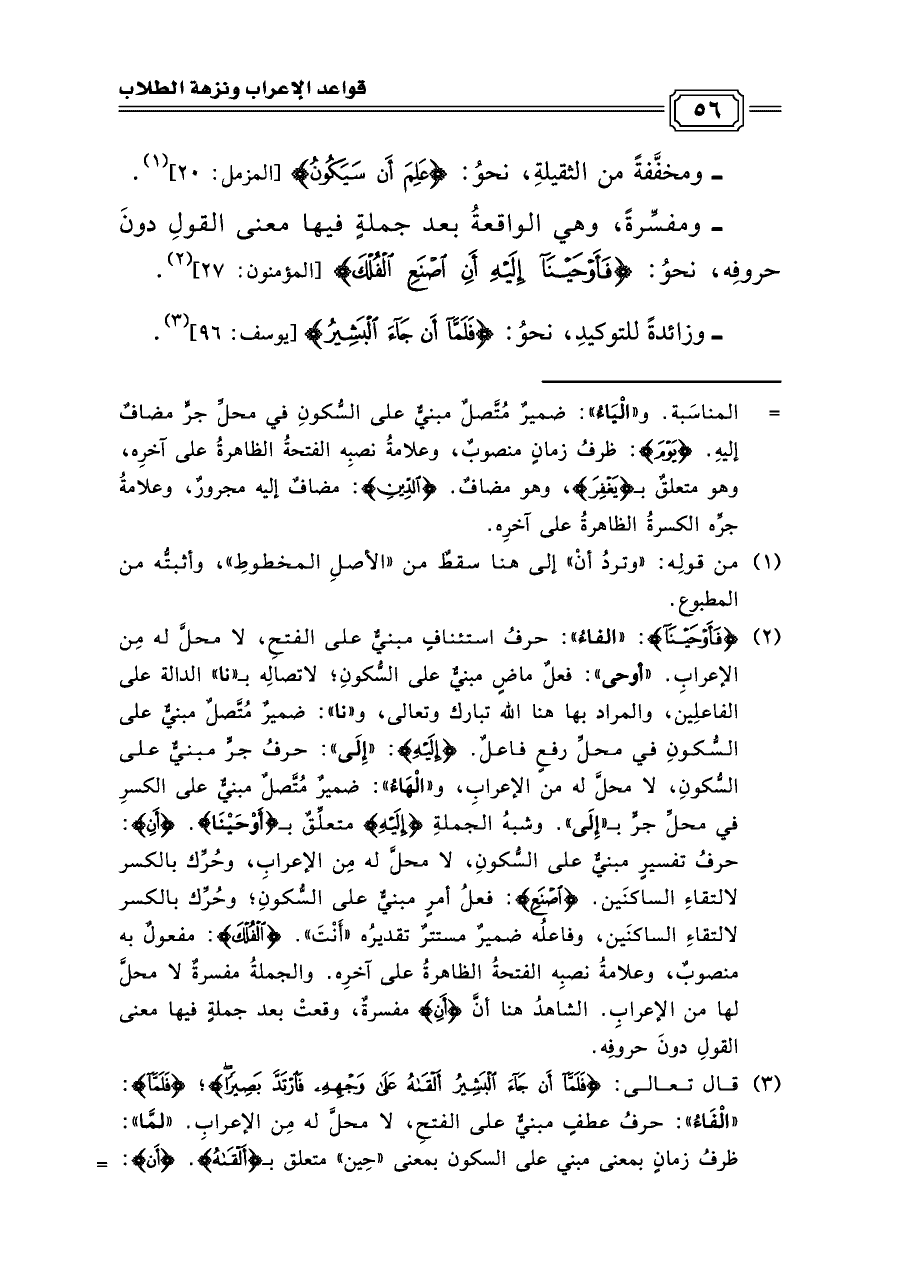 قواعد الإعراب ونزهة الطلاب
٥٦
ـ ومخفَّفةً من الثقيلةِ، نحوُ: ﴿عَلِمَ أَن سَيَكُونُ﴾ [المزمل: ٢٠](١).
ـ ومفسِّرةً، وهي الواقعةُ بعد جملةٍ فيها معنى القولِ دونَ
حروفِه، نحوُ: ﴿فَأَوْحَيْنَآ إِلَيْهِ أَنِ ٱصْنَعِ ٱلْفُلْكَ﴾ [المؤمنون: ٢٧](٢).
ـ وزائدةً للتوكيدِ، نحوُ: ﴿فَلَمَّآ أَن جَآءَ ٱلْبَشِيرُ﴾ [يوسف: ٩٦](٣).
= المناسَبة. و«الْيَاءُ»: ضميرٌ مُتَّصلٌ مبنيٌّ على السُّكونِ في محلِّ جرٍّ مضافٌ
إليهِ. ﴿يَوْمَ﴾: ظرفُ زمانٍ منصوبٌ، وعلامةُ نصبِه الفتحةُ الظاهرةُ على آخرِه،
وهو متعلقٌ بـ﴿يَغْفِرَ﴾، وهو مضافٌ. ﴿ٱلدِّينِ﴾: مضافٌ إليه مجرورٌ، وعلامةُ
جرِّه الكسرةُ الظاهرةُ على آخرِه.
(١) من قولِه: «وتردُ أنْ» إلى هنا سقطٌ من «الأصلِ المخطوطِ»، وأثبتُّه من
المطبوع.
(٢) ﴿فَأَوْحَيْنَآ﴾: «الفاءُ»: حرفُ استئنافٍ مبنيٌّ على الفتحِ، لا محلَّ له مِن
الإعرابِ. «أوحى»: فعلٌ ماضٍ مبنيٌّ على السُّكونِ؛ لاتصالِه بـ«نا» الدالة على
الفاعلِين، والمراد بها هنا الله تبارك وتعالى، و«نا»: ضميرٌ مُتَّصلٌ مبنيٌّ على
السُّكونِ في محلِّ رفعٍ فاعلٌ. ﴿إِلَيْهِ﴾: «إِلَى»: حرفُ جرٍّ مبنيٌّ على
السُّكونِ، لا محلَّ له من الإعرابِ، و«الْهَاءُ»: ضميرٌ مُتَّصلٌ مبنيٌّ على الكسرِ
في محلِّ جرٍّ بـ«إِلَى». وشبهُ الجملةِ ﴿إِلَيْهِ﴾ متعلِّقٌ بـ﴿أَوْحَيْنَا﴾. ﴿أَنِ﴾:
حرفُ تفسيرٍ مبنيٌّ على السُّكونِ، لا محلَّ له مِن الإعرابِ، وحُرِّك بالكسر
لالتقاءِ الساكنَين. ﴿ٱصْنَعِ﴾: فعلُ أمرٍ مبنيٌّ على السُّكونِ؛ وحُرِّك بالكسر
لالتقاءِ الساكنَين، وفاعلُه ضميرٌ مستترٌ تقديرُه «أَنْتَ». ﴿ٱلْفُلْكَ﴾: مفعولٌ به
منصوبٌ، وعلامةُ نصبِه الفتحةُ الظاهرةُ على آخرِه. والجملةُ مفسرةٌ لا محلَّ
لها من الإعرابِ. الشاهدُ هنا أنَّ ﴿أَنِ﴾ مفسرةٌ، وقعتْ بعد جملةٍ فيها معنى
القولِ دونَ حروفِه.
(٣) قال تعالى: ﴿فَلَمَّآ أَن جَآءَ ٱلْبَشِيرُ أَلْقَىٰهُ عَلَىٰ وَجْهِهِۦ فَٱرْتَدَّ بَصِيرًاۖ﴾؛ ﴿فَلَمَّآ﴾:
«الْفَاءُ»: حرفُ عطفٍ مبنيٌّ على الفتحِ، لا محلَّ له مِن الإعرابِ. «لمَّا»:
ظرفُ زمانٍ بمعنى مبني على السكون بمعنى «حِين» متعلق بـ﴿أَلْقَىٰهُ﴾. ﴿أَن﴾: =